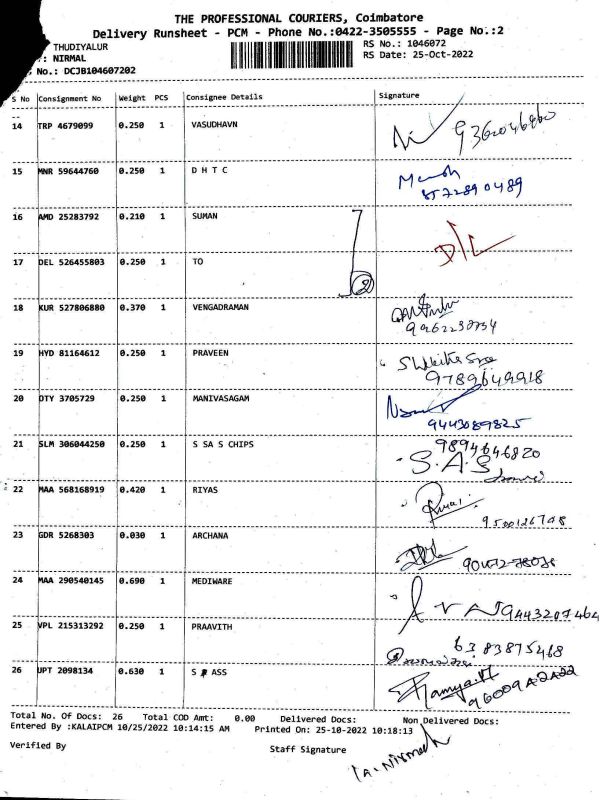 THE PROFESSIONAL COURIERS, Coimbatore
Delivery Runsheet - PCM - Phone No.:0422-3505555 - Page No.:2
THUDIYALUR RS No.: 1046072
: NIRMAL RS Date: 25-Oct-2022
No.: DCJB104607202
S No Consignment No Weight PCS Consignee Details Signature
14 TRP 4679099 0.250 1 VASUDHAVN
15 MNR 59644760 0.250 1 D H T C
8572890489
16 AMD 25283792 0.210 1 SUMAN
D/L
17 DEL 526455803 0.250 1 TO
2
18 KUR 527806880 0.370 1 VENGADRAMAN
19 HYD 81164612 0.250 1 PRAVEEN
9789649918
20 DTY 3705729 0.250 1 MANIVASAGAM
9443089825
21 SLM 306044250 0.250 1 S SA S CHIPS 9894646820
S.A.S
22 MAA 568168919 0.420 1 RIYAS
9500126708
23 GDR 5268303 0.030 1 ARCHANA
24 MAA 290540145 0.690 1 MEDIWARE
9443207464
25 VPL 215313292 0.250 1 PRAAVITH
6383875468
26 UPT 2098134 0.630 1 S ASS
Ramya
Total No. Of Docs: 26 Total COD Amt: 0.00 Delivered Docs: Non Delivered Docs:
Entered By :KALAIPCM 10/25/2022 10:14:15 AM Printed On: 25-10-2022 10:18:13
Verified By Staff Signature
A. Nirmal